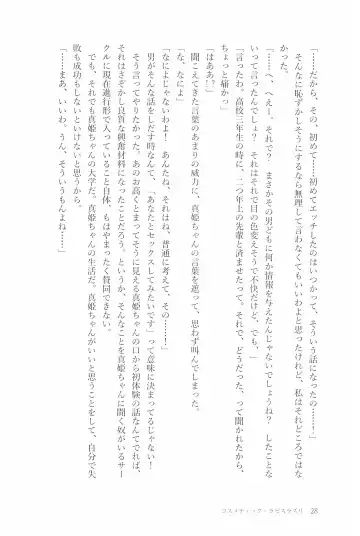 「……だから、その、初めて……初めてエッチしたのはいつかって、そういう話になったの……！」
　そんなに恥ずかしそうにするなら無理して言わなくてもいいわよと思ったけれど、私はそれどころではな
かった。
「へ、へえー。それで？　まさかその男どもに何か情報を与えたんじゃないでしょうね？　したことな
いって言ったんでしょ？　それはそれで目の色変えそうで不快だけど、でも、」
「言ったわ。高校三年生の時に、二つ年上の先輩と済ませたって。それで、どうだった、って聞かれたから、
ちょっと痛かっ」
「はああ？」
　聞こえてきた言葉のあまりの威力に、真姫ちゃんの言葉を遮って、思わず叫んでしまった。
「な、なによ」
「なによじゃないわよ！　あんたね、それはね、普通に考えて、その……！」
　男がそんな話をしだす時なんて、「あなたとセックスしてみたいです」って意味に決まってるじゃない！
　そう言ってやりたかった。このお高くとまってそうに見える真姫ちゃんの口から初体験の話なんてでれば、
それはさぞかし良質な興奮材料になったことだろう。というか、そんなことを真姫ちゃんに聞く奴がいるサー
クルに現在進行形で入っていること自体、もはやまったく賛同できない。
　でも、それでも真姫ちゃんの大学だ。真姫ちゃんの生活だ。真姫ちゃんがいいと思うことをして、自分で失
敗も成功もしないといけないと思うから。
「……まあ、いいわ。うん、そういうもんよね……」
コスメティック・ラピスラズリ　28